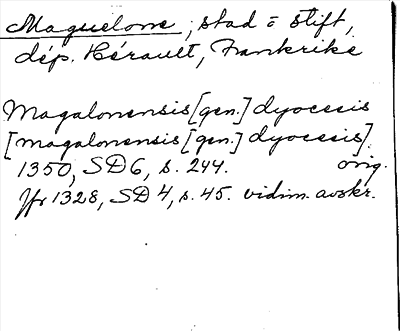 Maguelone; stad o stift,
dép. Hérault, Frankrike
Magalonensis [gen.] dyocesis
[magalonensis [gen.] dyocesis].
1350, SD 6, s. 244. orig.
Jfr 1328, SD 4, s. 45. vidim. avskr.